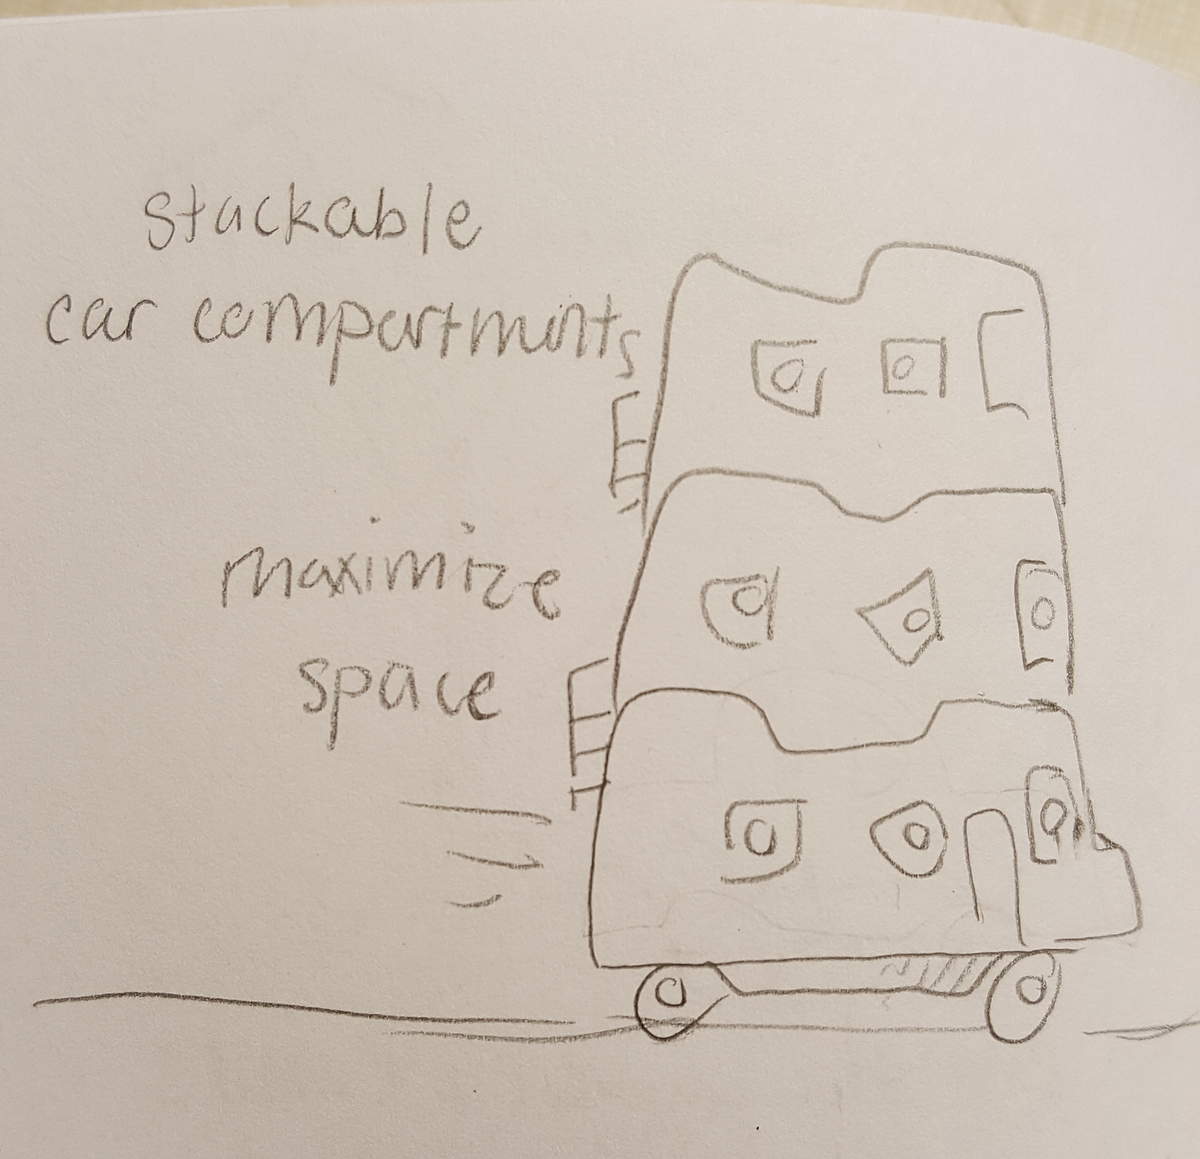 stackable
car compartments
maximize
space